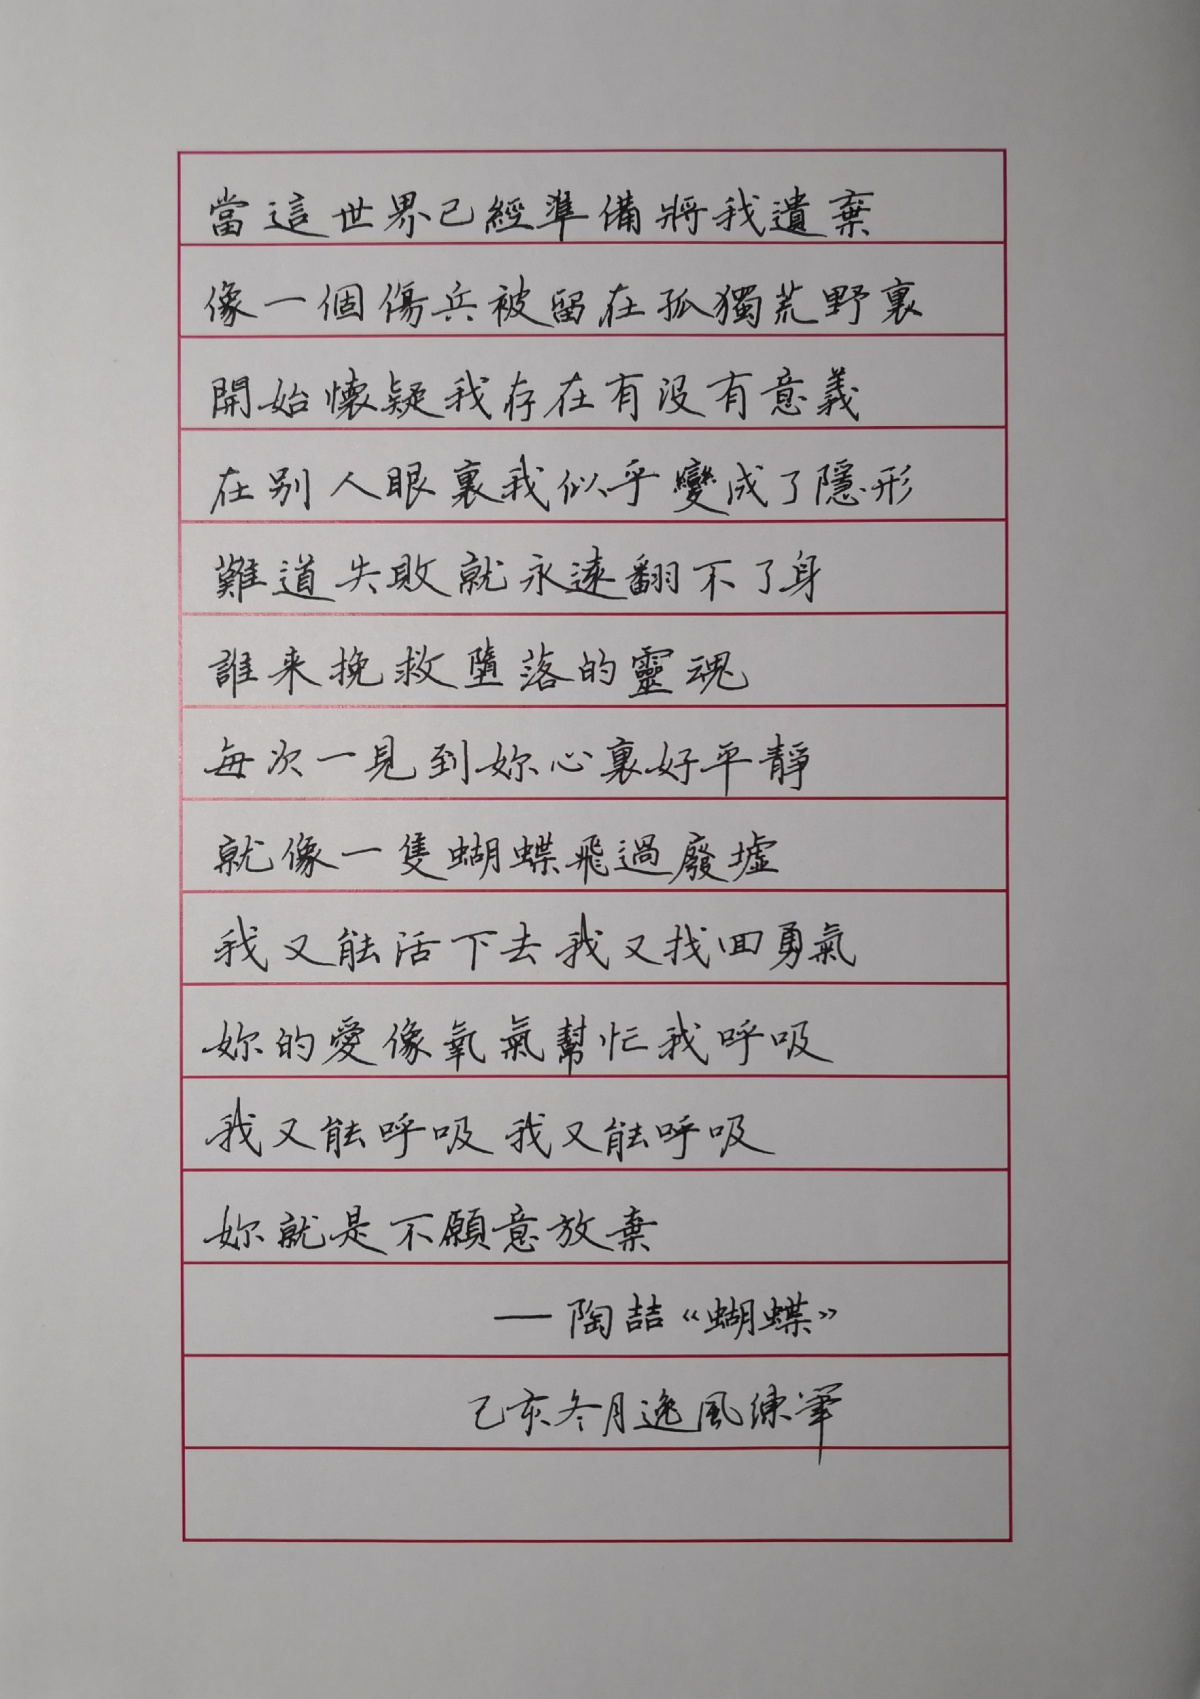 當這世界已經準備將我遺棄
像一個傷兵被留在孤獨荒野裏
開始懷疑我存在有没有意義
在别人眼裏我似乎變成了隱形
難道失敗就永遠翻不了身
誰来挽救墮落的靈魂
每次一見到妳心裏好平靜
就像一隻蝴蝶飛過廢墟
我又能活下去我又找回勇氣
妳的愛像氧氣幫忙我呼吸
我又能呼吸 我又能呼吸
妳就是不願意放棄
——陶喆《蝴蝶》
己亥冬月逸風練筆